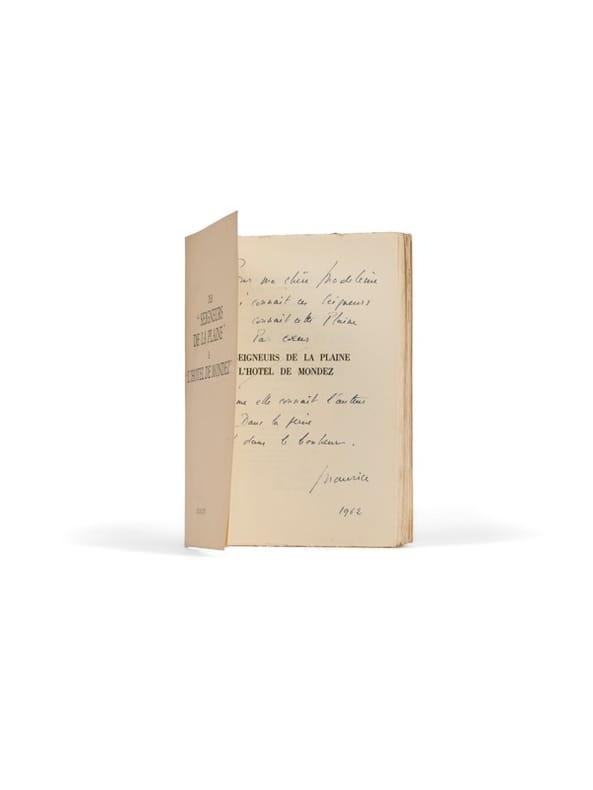 DES
"SEIGNEURS
DE LA PLAINE"
à
"L'HOTEL DE MONDEZ"
ma chère Madeleine
connait ces Seigneurs
connait cette Plaine
Par cœur
EIGNEURS DE LA PLAINE
L'HOTEL DE MONDEZ
me elle connait l'auteur
Dans la peine
dans le bonheur.
Maurice
1962